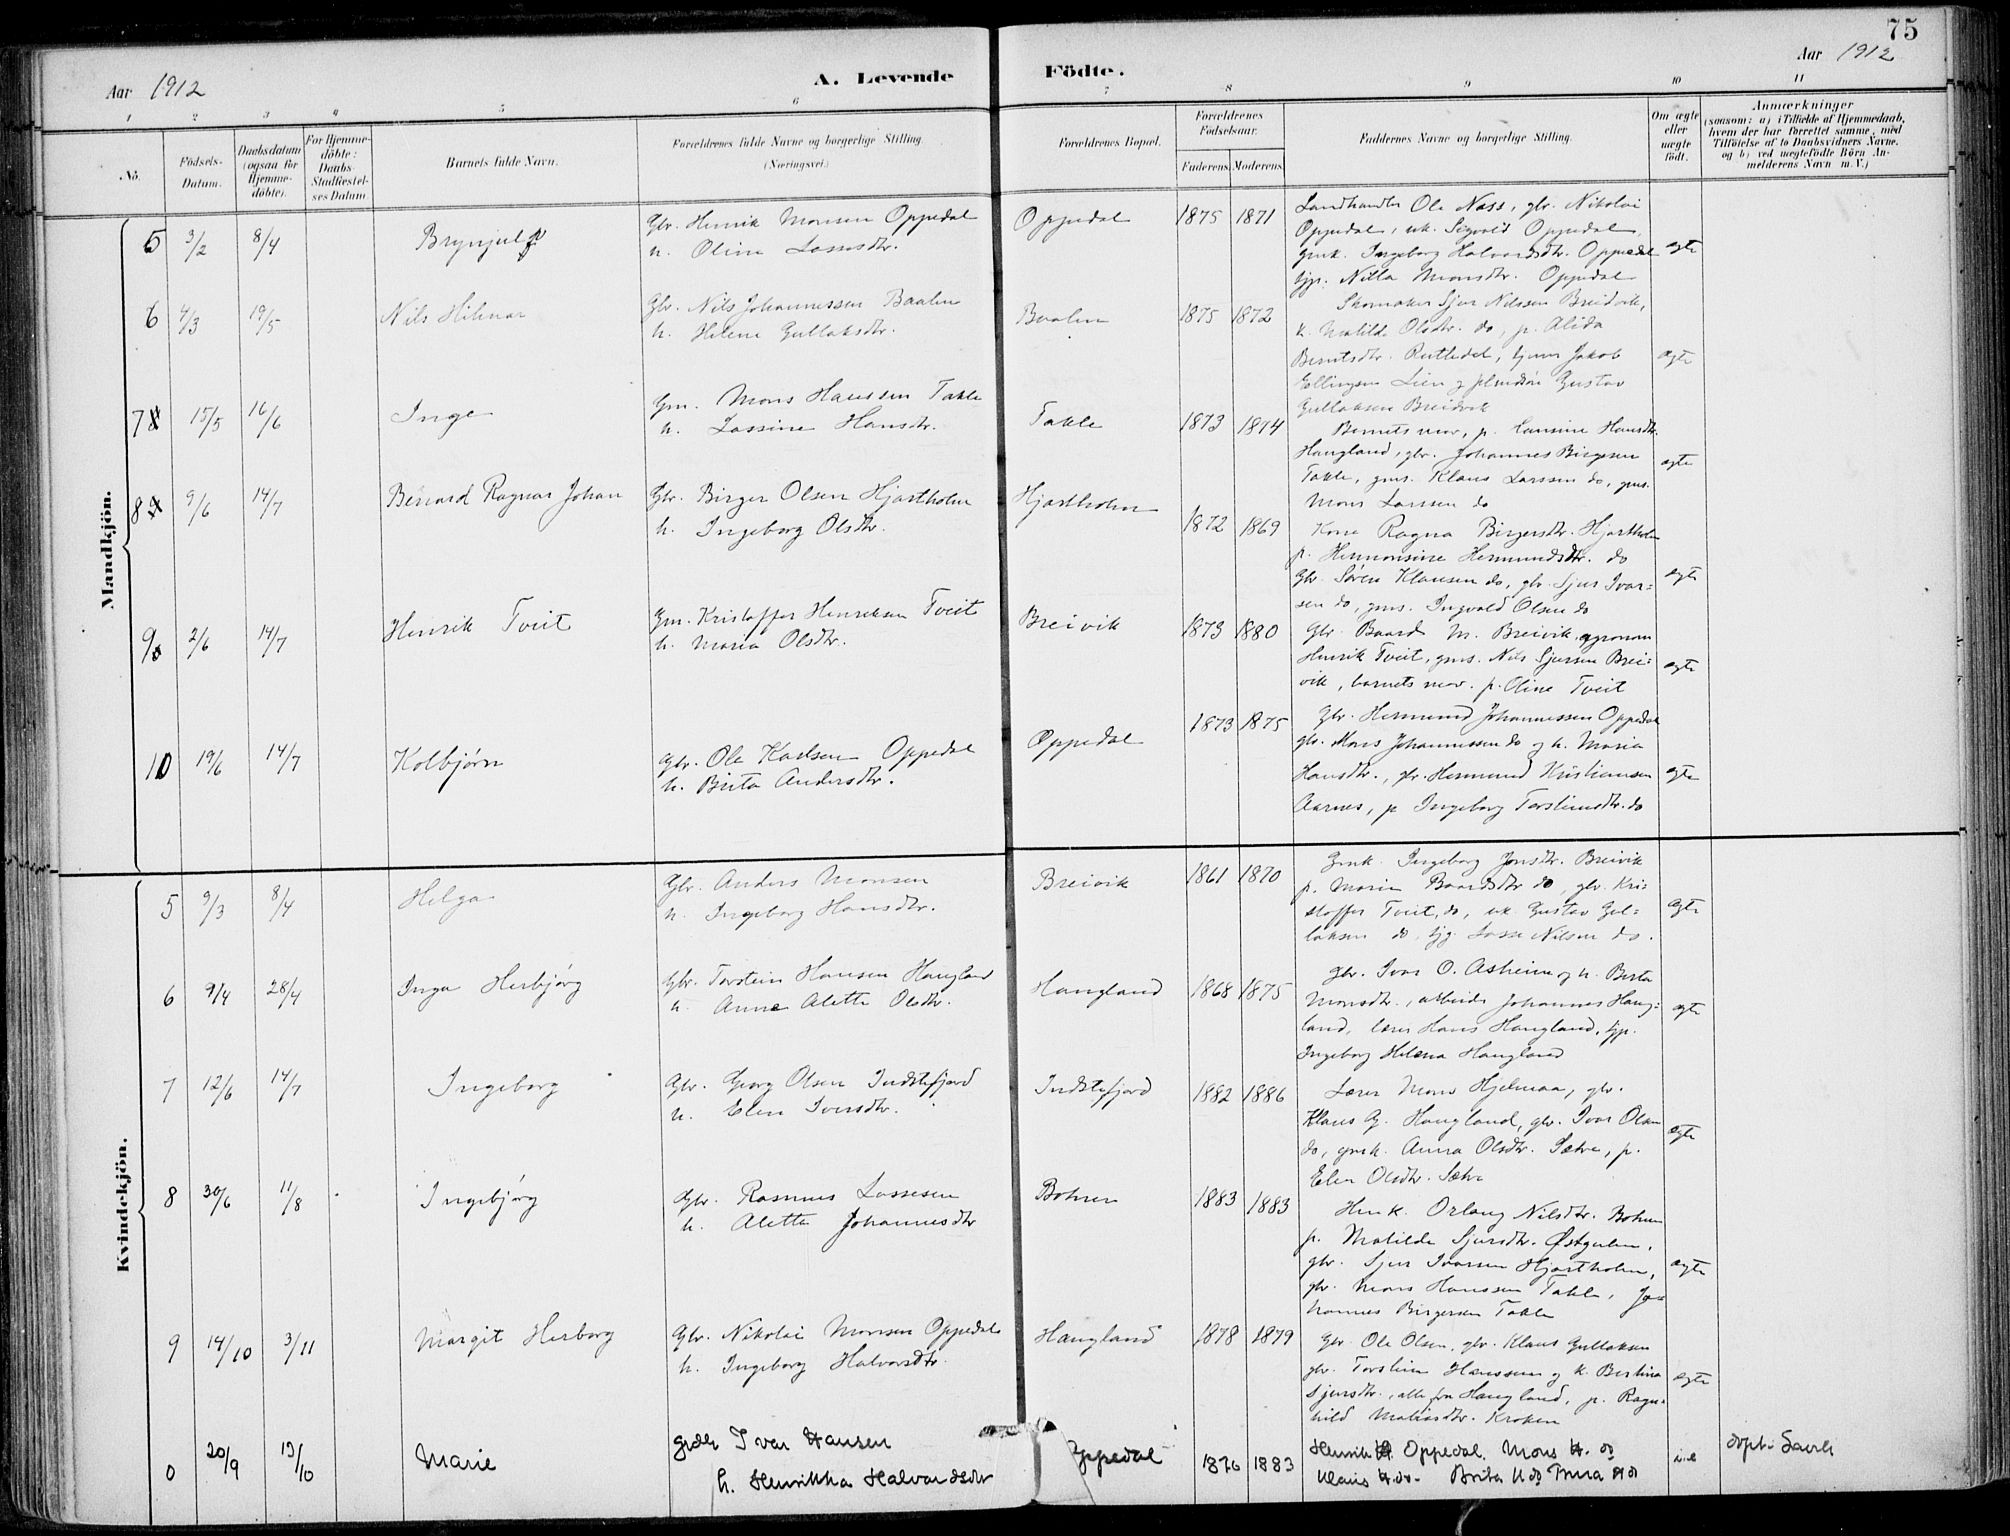 75
Aar 1912
A. Levende
Födte.
Aar 1912
1 2 3 4 5 6 7 8 9 10 11
No.
Födsels-Datum.
Daabsdatum (ogsaa for Hjemme-döbte).
For Hjemme-döbte: Daabs-Stadfæstel-ses Datum
Barnets fulde Navn.
Forældrenes fulde Navne og borgerlige Stilling.
(Næringsvei.)
Forældrenes Bopæl.
Forældrenes Födselsaar.
Faderens. Moderens.
Faddernes Navne og borgerlige Stilling.
Om ægte eller uægte födt.
Anmærkninger
(saasom: a) i Tilfælde af Hjemmedaab, hvem der har forrettet samme, med Tilföielse af to Daabsvidners Navne. og b) ved uægtefödte Börn An-melderens Navn m. V.)
Mandkjön.
5 3/2 8/4 Brynjulf
Gbr. Henrik Monsen Oppedal
h. Oline Lassesdtr.
Oppedal 1875 1871
Landhandler Ole Næss, gbr. Nikolai
Oppedal, uk. Sigvald Oppedal,
gmk. Ingeborg Halvardsdtr. Oppedal
tjp. Nilla Monsdtr. Oppedal
ægte
6 4/3 19/5 Nils Hilmar
Gbr. Nils Johannessen Baalen
h. Helene Gullaksdtr.
Baalen 1875 1872
Skomaker Sjur Nilssen Breidvik,
k. Matilde Olsdtr. do, p. Alida
Berntsdtr. Rutledal, Jakob
Ellingsen Lien og Gustav
Gullaksen Breidvik
ægte
7 15/5 16/6 Inge
Gm. Mons Hanssen Takle
h. Lassine Hansdtr.
Takle 1873 1874
Barnets mor, p. Hansdtr.
Haugland, gbr. Johannes Birgesen
Takle, gms. Klaus Larssen do, gms.
Mons Larssen do
ægte
8 9/6 14/7 Bernard Ragnar Johan
Gbr. Birger Olsen Hjartholm
h. Ingeborg Olsdtr.
Hjartholm 1872 1869
Kone Ragna Birgersdtr. Hjartholm
p. Hermonsine Hermundsdtr. do
Gbr. Søren Klausen do, gbr. Sjur Ivar-
sen do, gms. Ingvald Olsen do
ægte
9 2/6 14/7 Henrik Tveit
Gm. Kristoffer Henriksen Tveit
h. Maria Olsdtr.
Breivik 1873 1880
Gbr. Baard M. Breivik, agronom
Henrik Tveit, gms. Nils Sjursen Brei-
vik, barnets mor. p. Oline Tveit
ægte
10 19/6 14/7 Kolbjørn
Gbr. Ole Karlsen Oppedal
h. Brita Andersdtr.
Oppedal 1873 1875
Gbr. Hermund Johannessen Oppedal
gbr. Mons Johannessen do og h. Maria
Hansdtr., gbr. Hermund Kristiansen
Aarnes, p Ingeborg Torsteinsdtr. do
ægte
Kvindekjön.
5 9/3 8/4 Helga
Gbr. Anders Monsen
h. Ingeborg Hansdtr.
Breivik 1861 1870
Gmk. Ingeborg Jonsdtr. Breivik
p. Marie Baardsdtr do, gbr. Kris
stoffer Tveit, do, uk. Gustav Gul-
laksen do, tjg. Lasse Nilsen do.
ægte
6 9/4 28/4 Inga Herbjørg
Gbr. Torstein Hansen Haugland
h. Anne Alette Olsdtr.
Haugland 1868 1875
Gbr. Ivar O. Asheim og h. Berta
Monsdtr., arbeider Johannes Haug-
land, lærer Hans Haugland, tjp.
Ingeborg Helena Haugland
ægte
7 12/6 14/7 Ingeborg
Gbr. Georg Olsen Indstefjord
h. Elen Iversdtr.
Indstefjord 1882 1886
Lærer Mons Hjelmaa, gbr.
Klaus G. Haugland, gbr. Ivar Olsen
do, gmk. Anna Olsdtr. Sætre, p.
Elen Olsdtr. Sætre
ægte
8 30/6 11/8 Ingebjørg
Gbr. Rasmus Lassesen
h. Alette Johannesdtr
Bohnen 1883 1883
Orlaug Nilsdtr. Bohnen
p. Matilde Sjursdtr. Østgulen,
gbr. Sjur Ivarsen Hjartholm,
gbr. Mons Hanssen Takle, Jo-
hannes Birgersen Takle
ægte
9 14/10 3/11 Margit Herborg
Gbr. Nikolai Monsen Oppedal
h. Ingeborg Halvorsdtr.
Haugland 1878 1879
Gbr Ole Olsen, gbr. Klaus Gullaksen
gbr. Torstein Hanssen og k. Bertina
Sjursdtr., alle fra Haugland, p. Ragn-
hild Matiasdtr. Kroken
ægte
0 20/9 13/10 Marie
Ivar Hansen
h. Henrikka Halvardsdtr
Oppedal 1876 1883
Henrik Oppedal, Mons H. do
Klaus H. do. Brita